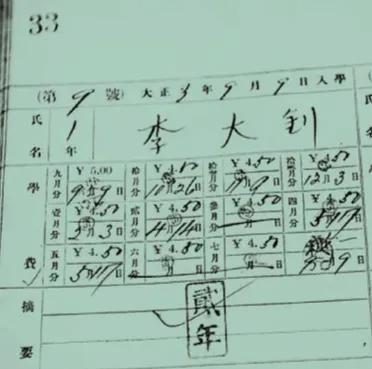 33
(第 9 號) 大正 3 年 9 月 9 日入學
氏名 1年 李大釗
學費
九月分 ¥5.00 9月9日
拾月分 ¥4.50 10月26日
拾壹月分 ¥4.50
拾貳月分 ¥4.50 12月3日
壹月分 ¥4.50
貳月分 ¥4.50
參月分 ¥4.50 月 日
四月分 ¥4.50
五月分 ¥4.50
六月分 ¥4.50 月 日
七月分 ¥4.50 月 日
摘要 貳年